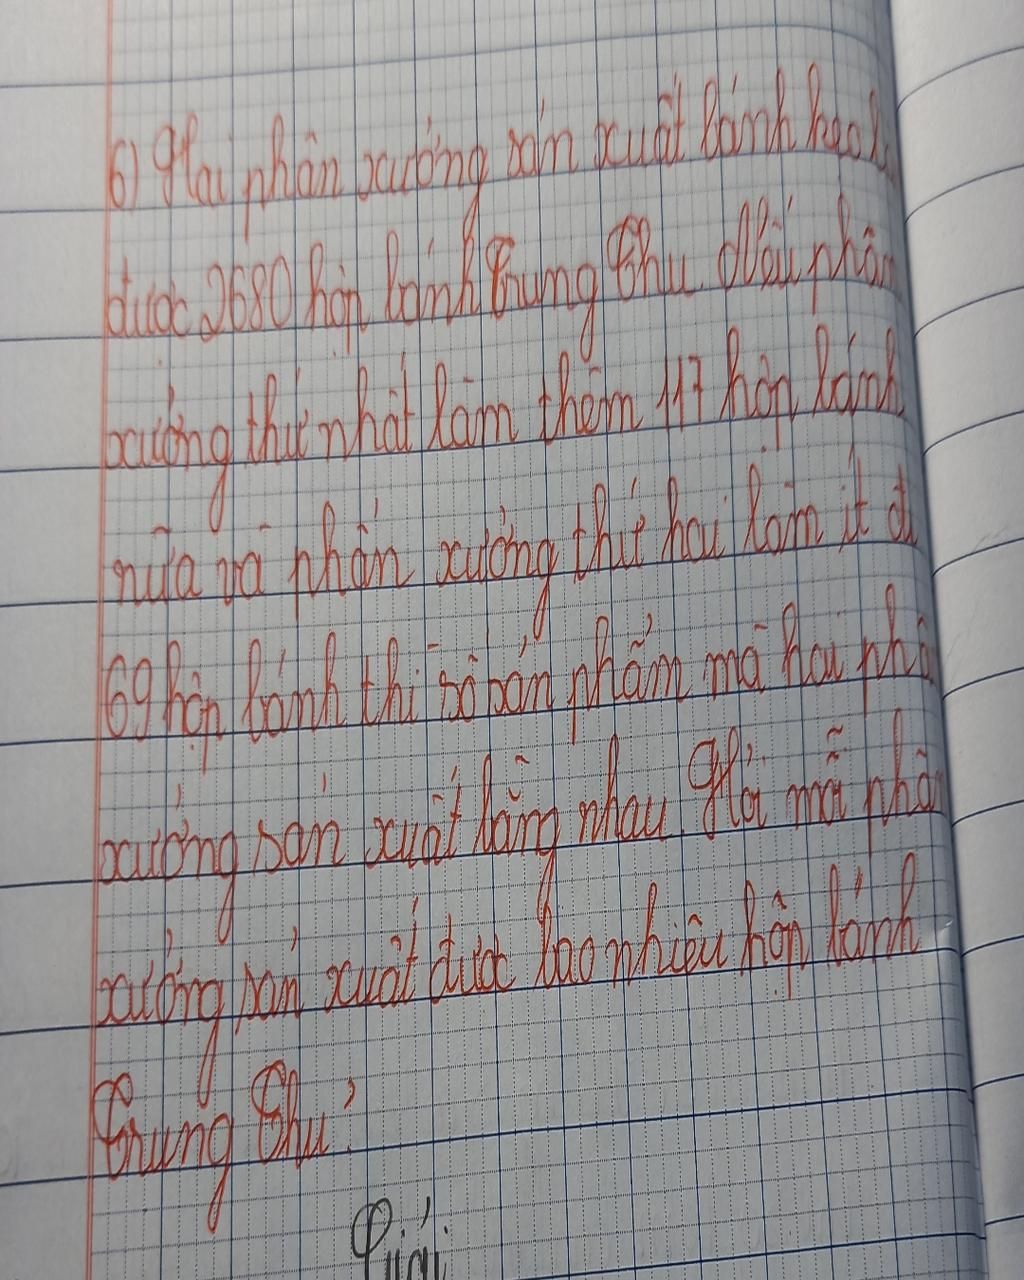 6) Hai phân xưởng sản xuất bánh kẹo
được 2680 hộp bánh Trung Thu. Nếu phân
xưởng thứ nhất làm thêm 117 hộp bánh
nữa và phân xưởng thứ hai làm ít đi
69 hộp bánh thì số sản phẩm mà hai phân
xưởng sản xuất bằng nhau. Hỏi mỗi phân
xưởng sản xuất được bao nhiêu hộp bánh
Trung Thu?
Giải: